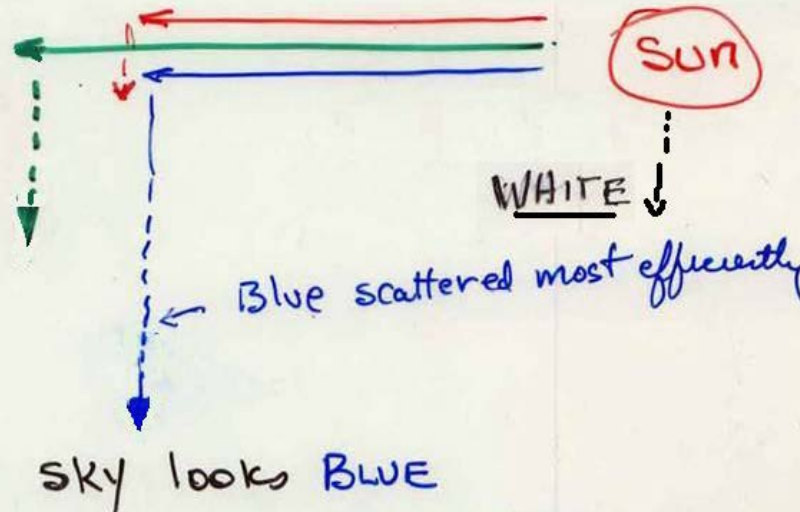 Sun
WHITE
Blue scattered most efficiently
SKY looks BLUE